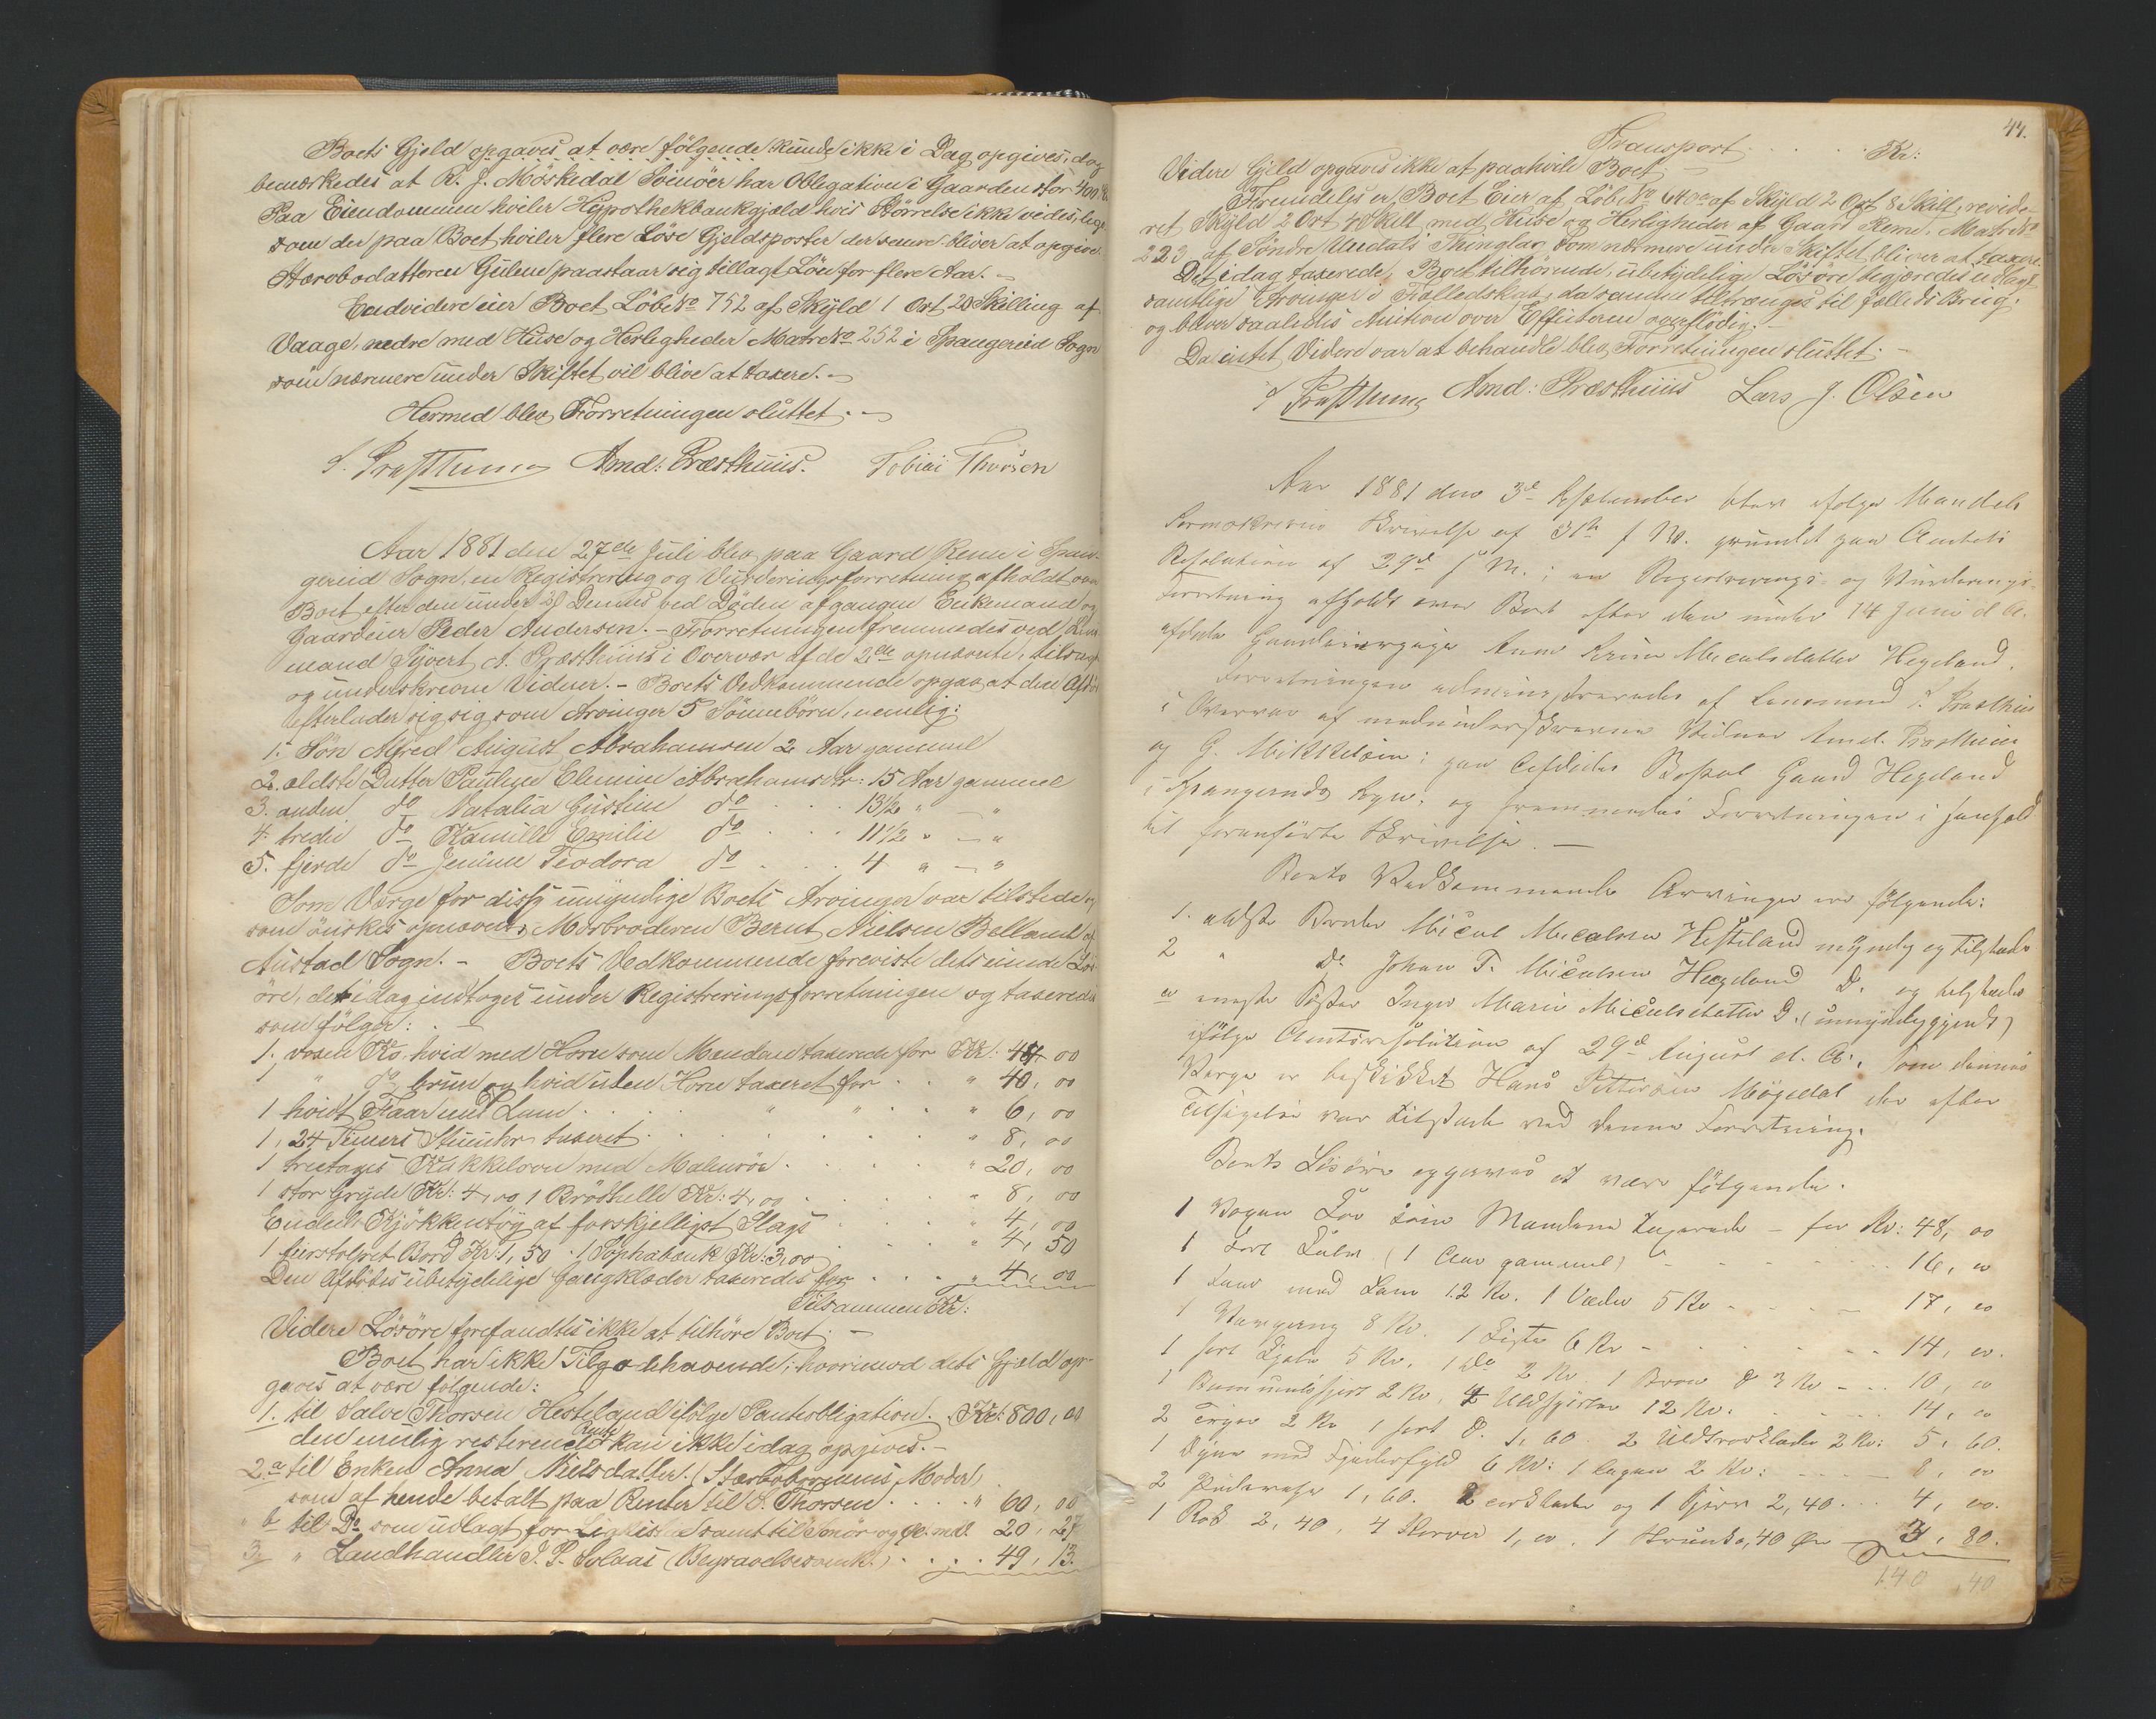 Boets Gjeld opgaves at være følgende kunde ikke i Dag opgives, dog
bemærkedes at R. J. Möskedal Svinöer har Obligation i Gaarden stor 400
Paa Eiendommen hviler Hypothekbankgjæld hvis Störrelse ikke vides, lige
som der paa Boet hviler flere Löse Gjeldsposter der senere bliver at opgive.
Stervbodatteren Guline paastaar sig tillagt Lön for flere Aar. -
Endvidere eier Boet Löbe No 752 af Skyld 1 Ort 20 Skilling af
Vaage, nedre med Huse og Herligheder Matre No 252 i Spangereid Sogn
som nærmere under Skiftet vil blive at taxere. -
Hermed blev Forretningen sluttet. -
S. Præsthuus Amd: Præsthuus. Tobias Thorsen
Aar 1881 den 27de Juli blev paa Gaard Rene i Span-
gereid Sogn, en Registrering og Vurderingsforretning afholdt over
Boet efter den under Dennes ved Döden afgangne Enkemand og
Gaardeier Peder Andersen. - Forretningen fremmedes ved Lens
mand Syvert A. Præsthuus i Overvær af de 2de opnævnte, tilsagte
og underskrevne Vidner. - Boets Vedkommende opgav at den Afdöde
efterlader sig sig som Arvinger 5 Sönnebörn, nemlig:
1. Sön Alfred August Abrahamsen 2 Aar gammel
2. ældste Datter Pauline Elemine Abrahamsdtr: 15 Aar gammel
3. anden do Natalia Gustine do . . . 13½ " — "
4. tredie do Kamille Emilie do . . . 11½ " — "
5. fjerde do Jenine Teodora do . . . 4 " — "
Som Værge for disse umyndige Boets Arvinger var tilstede og
som önskes opnævnt, Morbroderen Bernt Nielsen Belland af
Austad Sogn. - Boets Vedkommende foreviste dets eiende Lös-
öre, det idag indtoges under Registreringsforretningen og taxeredes
som fölger:
1. voxen Ko. hvid med Horn som Mændene taxerede for Kr: 48, 00
1 " do brun og hvid uden Horn taxeret for . . " 40, 00
1 hvidt Faar med Lam . . . " 6, 00
1, 24 Timers Stueuhr taxeret . . . " 8, 00
1 treetages Kakkelovn med Malmrör . . . " 20, 00
1 stor Gryde Kr: 4,00 1 Bröshelle Kr: 4,00 . . " 8, 00
Endeel Kjökkentöy af forskjelligst Slags . . . " 4, 00
1 firstolpet Bord Kr: 1,50 . 1 Sophabænk Kr: 3,00 . . " 4, 50
Den Afdödes übetydelige Gangklæder taxeredes for . . . " 4, 00
Tilsammen Kr:
Videre Lösöre forefandtes ikke at tilhöre Boet. -
Boet har ikke Tilgodehavende; hvorimod dets Gjeld op-
gaves at være fölgende:
1. til Salve Thorsen Hesteland ifölge Pantobligation. Kr: 800, 00
den mulig resterende Rente kan ikke idag opgives. -
2. a til Enken Anna Nielsdatter. (Stærbobornenes Moder)
som af hende betalt paa Renter til S. Thorsen . . . " 60, 00
" b til Do som udlagt for Ligkiste samt til Smör og . 20, 27
3. " Landhandler J. P. Solaas (Begravelsesomk.) . . . . 49, 13.
44.
Transport . . . . . Kr:
Videre Gjeld opgaves ikke at paahvile Boet. -
Fremdeles er Boet Eier af Löbe No 640 a af Skyld 2 Ort 8 Skill, revide-
ret Skyld 2 Ort 4 Skill med Huse og Herligheder af Gaard Rene. Matre No
223 af Söndre Undals Thinglag, som nærmere under Skiftet bliver at taxere.
Det idag taxerede, Boet tilhörende, übetydelige Lösöre begjæredes udlagt
samtlige Arvinger i Fælledskab, da samme tiltrænges til fælleds Brug,
og bliver saaledes Auktion over Effekterne overflödig. -
Da intet Videre var at behandle blev Forretningen sluttet. -
S Præsthuus Amd: Præsthuus Lars J. Olsen
Aar 1881 den 3de September blev ifølge Mandals
Sorenskriveris Skrivelse af 31te f. M. grundet paa Amtets
Resolution af 29de f. M.; en Registrerings- og Vurderings-
Forretning afholdt over Boet efter den under 14 Juni d. A.
afdøde Gaardeierpige Anne Karine Micalsdatter Hegeland.
Forretningen administreredes af Lensmand S. Præsthuus
i Overvær af medunderskrevne Vidner Amd. Præsthuus
og G. Mikkelsen; paa Afdødes Bopæl Gaard Hegeland
i Spangereids Sogn. og fremmedes Forretningen i Henhold
til foranførte Skrivelse. —
Boets Vedkommende Arvinger ere følgende:
1. ældste Broder Mical Micalsen Hesteland myndig og tilstede
2 " Do Johan T. Micalsen Hegeland Do og tilstede
eneste Søster Inger Marie Micalsdatter D. (umyndiggjort)
ifølge Amtsresolution af 29de August d. A., som dennes
Værge er beskikket Hans Pettersen Møgedal der efter
Tilsigelse var tilstede ved denne Forretning.
Boets Løsøre opgaves at være følgende.
1 Voxen Ko som Mændene taxerede — for Kr: 48, 00
1 sort Kalv (1 Aar gammel) - . . . . . 16, 00
1 Faar med Lam 12 Kr. 1 Væder 5 Kr - . . . - 17, 00
1 8 Kr. 1 Kiste 6 Kr - . . . . . 14, 00.
1 sort Kjole 5 Kr, 1 do 2 Kr. 1 Brun do 3 Kr - . . 10, 00
1 Bommuldsskjørt 2 Kr, 4 Uldskjørter 12 Kr. . . . . 14, 00
2 Trøyer 2 Kr 1 sort do 1, 60 2 Kr: 5, 60.
1 Dyne med Fjederfyld 6 Kr: 1 Lagen 2 Kr: - - - 8, 00
2 Pudevaar 1, 60. 2 og 1 2,40 . . . 4, 00.
1 Rok 2, 40, 4 Kurver 1, 00. 1 , 40 Øre — 3, 80.
140, 40